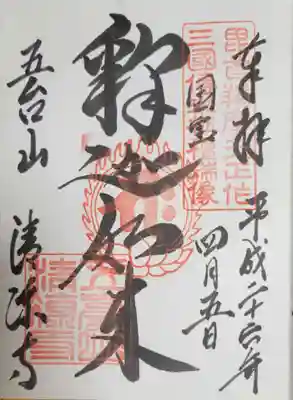 奉拝
平成二十六年
四月五日
国宝
三國 瑞像
釋迦如来
五台山
清凉寺